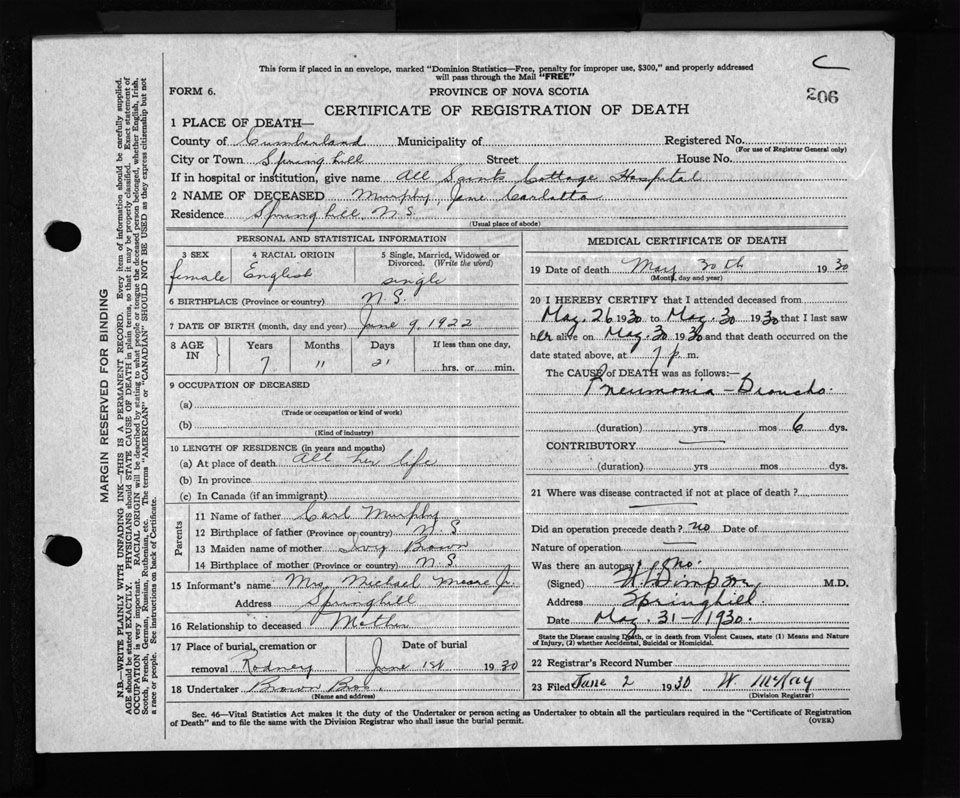 This form if placed in an envelope, marked "Dominion Statistics—Free, penalty for improper use, $300," and properly addressed
will pass through the Mail "FREE"
C
FORM 6.
PROVINCE OF NOVA SCOTIA
206
CERTIFICATE OF REGISTRATION OF DEATH
1 PLACE OF DEATH—
County of Cumberland Municipality of Registered No.
(For use of Registrar General only)
City or Town Spring hill Street House No.
If in hospital or institution, give name All Saints Cottage Hospital
2 NAME OF DECEASED Murphy Jane Carlotta
Residence Spring hill N.S.
(Usual place of abode)
PERSONAL AND STATISTICAL INFORMATION
3 SEX 4 RACIAL ORIGIN 5 Single, Married, Widowed or
Divorced. (Write the word)
female English single
6 BIRTHPLACE (Province or country) N.S.
7 DATE OF BIRTH (month, day and year) June 9, 1922
8 AGE IN Years Months Days If less than one day,
7 11 21 hrs. or min.
9 OCCUPATION OF DECEASED
(a)
(Trade or occupation or kind of work)
(b)
(Kind of industry)
10 LENGTH OF RESIDENCE (in years and months)
(a) At place of death All her life
(b) In province
(c) In Canada (if an immigrant)
Parents
11 Name of father Carl Murphy
12 Birthplace of father (Province or country) N.S
13 Maiden name of mother Ivy Brown
14 Birthplace of mother (Province or country) N.S
15 Informant's name Mrs. Michael Moore Jr.
Address Springhill
16 Relationship to deceased Mother
17 Place of burial, cremation or Date of burial
removal Rodney June 1st 1930
18 Undertaker Brown Bros.
(Name and address)
MEDICAL CERTIFICATE OF DEATH
19 Date of death May 30th 1930
(Month, day and year)
20 I HEREBY CERTIFY that I attended deceased from
May. 26 1930 to May. 30 1930 that I last saw
her alive on May. 30 1930 and that death occurred on the
date stated above, at 7 p. m.
The CAUSE of DEATH was as follows:—
Pneumonia - Broncho.
(duration) yrs mos 6 dys.
CONTRIBUTORY
(duration) yrs mos dys.
21 Where was disease contracted if not at place of death?
Did an operation precede death? no Date of
Nature of operation
Was there an autopsy? no.
(Signed) Simpson, M.D.
Address Springhill.
Date May. 31 - 1930.
State the Disease causing Death, or in death from Violent Causes, state (1) Means and Nature
of Injury, (2) whether Accidental, Suicidal or Homicidal.
22 Registrar's Record Number
23 Filed June 2 1930 W. McKay
(Division Registrar)
Sec. 46—Vital Statistics Act makes it the duty of the Undertaker or person acting as Undertaker to obtain all the particulars required in the "Certificate of Registration
of Death" and to file the same with the Division Registrar who shall issue the burial permit. (OVER)
MARGIN RESERVED FOR BINDING
N.B.—WRITE PLAINLY WITH UNFADING INK—THIS IS A PERMANENT RECORD. Every item of information should be carefully supplied.
AGE should be stated EXACTLY. PHYSICIANS should STATE CAUSE OF DEATH in plain terms, so that it may be properly classified. Exact statement of
OCCUPATION is very important. RACIAL ORIGIN will be described by stating to what people or tongue the deceased person belonged, whether English, Irish,
Scotch, French, German, Russian, Ruthenian, etc. The terms "AMERICAN" or "CANADIAN" SHOULD NOT BE USED as they express citizenship but not
a race or people. See instructions on back of Certificate.